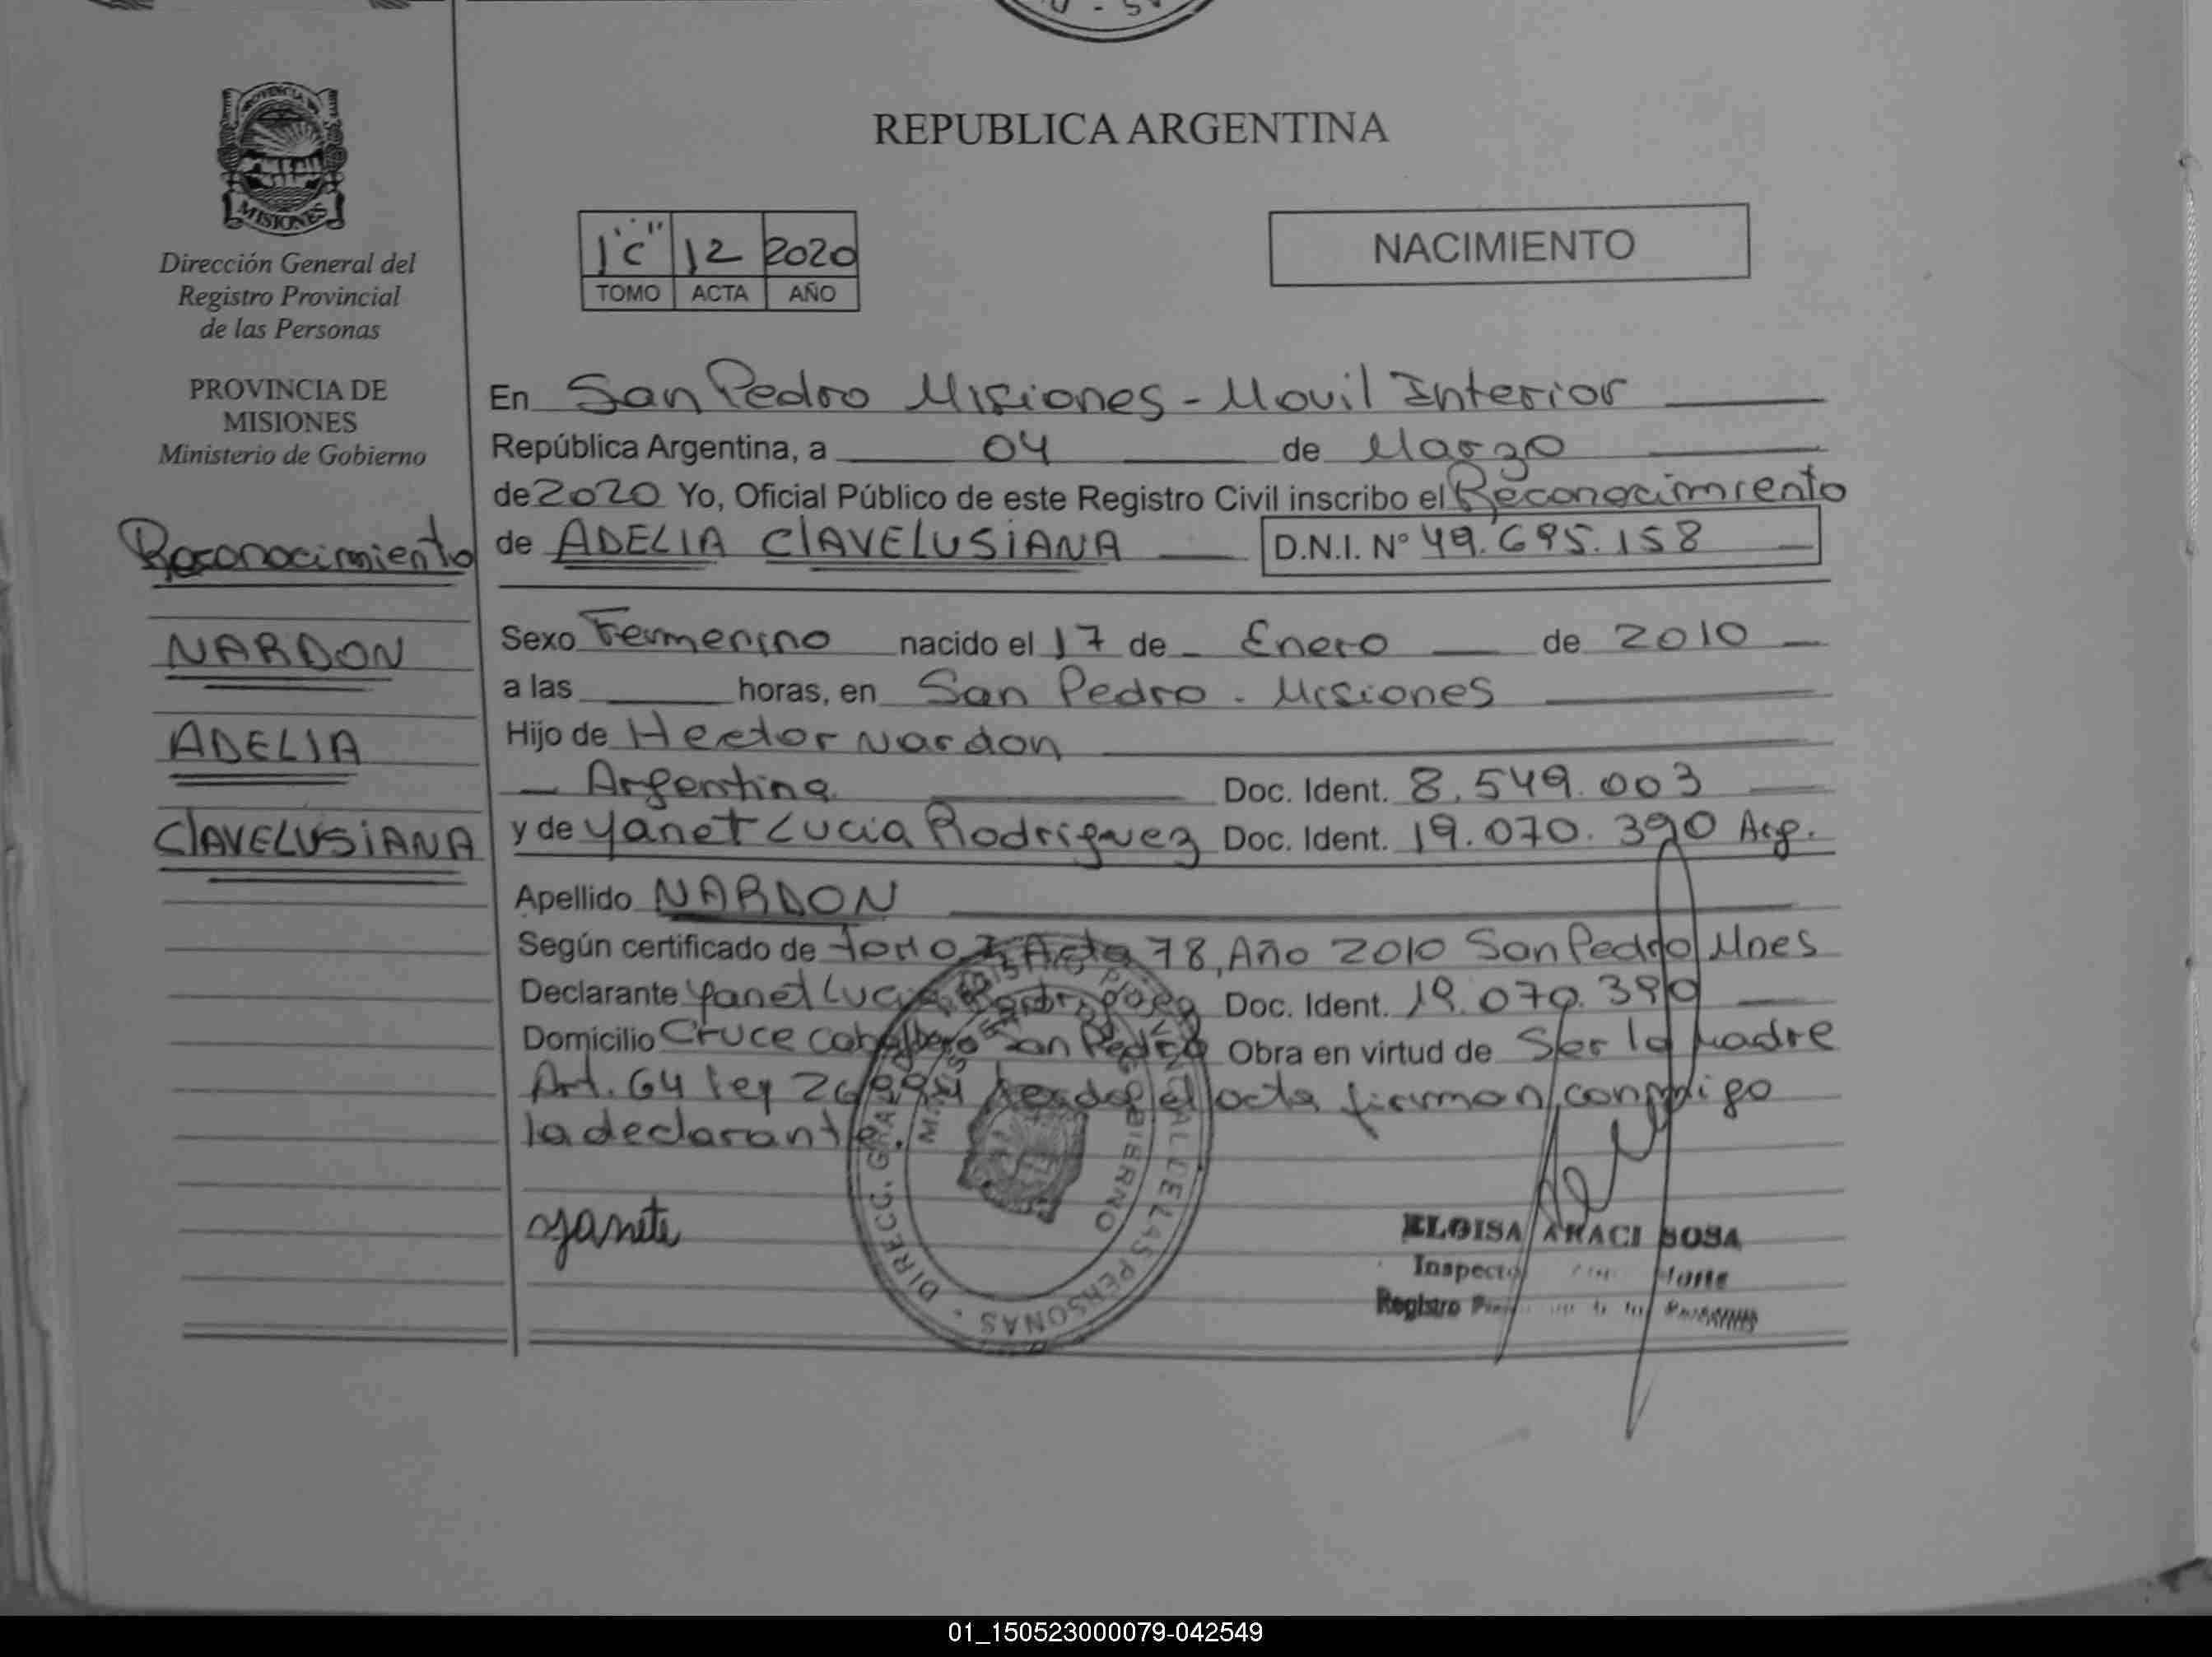 PROVINCIA DE
MISIONES
Dirección General del
Registro Provincial
de las Personas
PROVINCIA DE
MISIONES
Ministerio de Gobierno
Reconocimiento
NARDON
ADELIA
ClAVELUSiANA
REPUBLICA ARGENTINA
1"C" 12 2020
TOMO ACTA AÑO
NACIMIENTO
En San Pedro Misiones - Movil Interior
República Argentina, a 04 de Marzo
de 2020 Yo, Oficial Público de este Registro Civil inscribo el Reconocimiento
de ADELIA ClAVELUSiANA D.N.I. Nº 49.695.158
Sexo Femenino nacido el 17 de Enero de 2010
a las horas, en San Pedro - Misiones
Hijo de Hector Nardon
Argentina Doc. Ident. 8.549.003
y de Yanet Lucia Rodriguez Doc. Ident. 19.070.390 Arg.
Apellido NARDON
Según certificado de tomo I Acta 78, Año 2010 San Pedro Mnes
Declarante Yanet Lucia Rodriguez Doc. Ident. 19.070.390
Domicilio Cruce Caballero San Pedro Obra en virtud de Ser la Madre
Art. 64 ley 26994 el acta firman conmigo
la declarante.
yanete
DIRECC. GRAL. DEL LAS PERSONAS
GOBIERNO
ELOISA ARACI SOSA
Inspector Norte
Registro
01_150523000079-042549